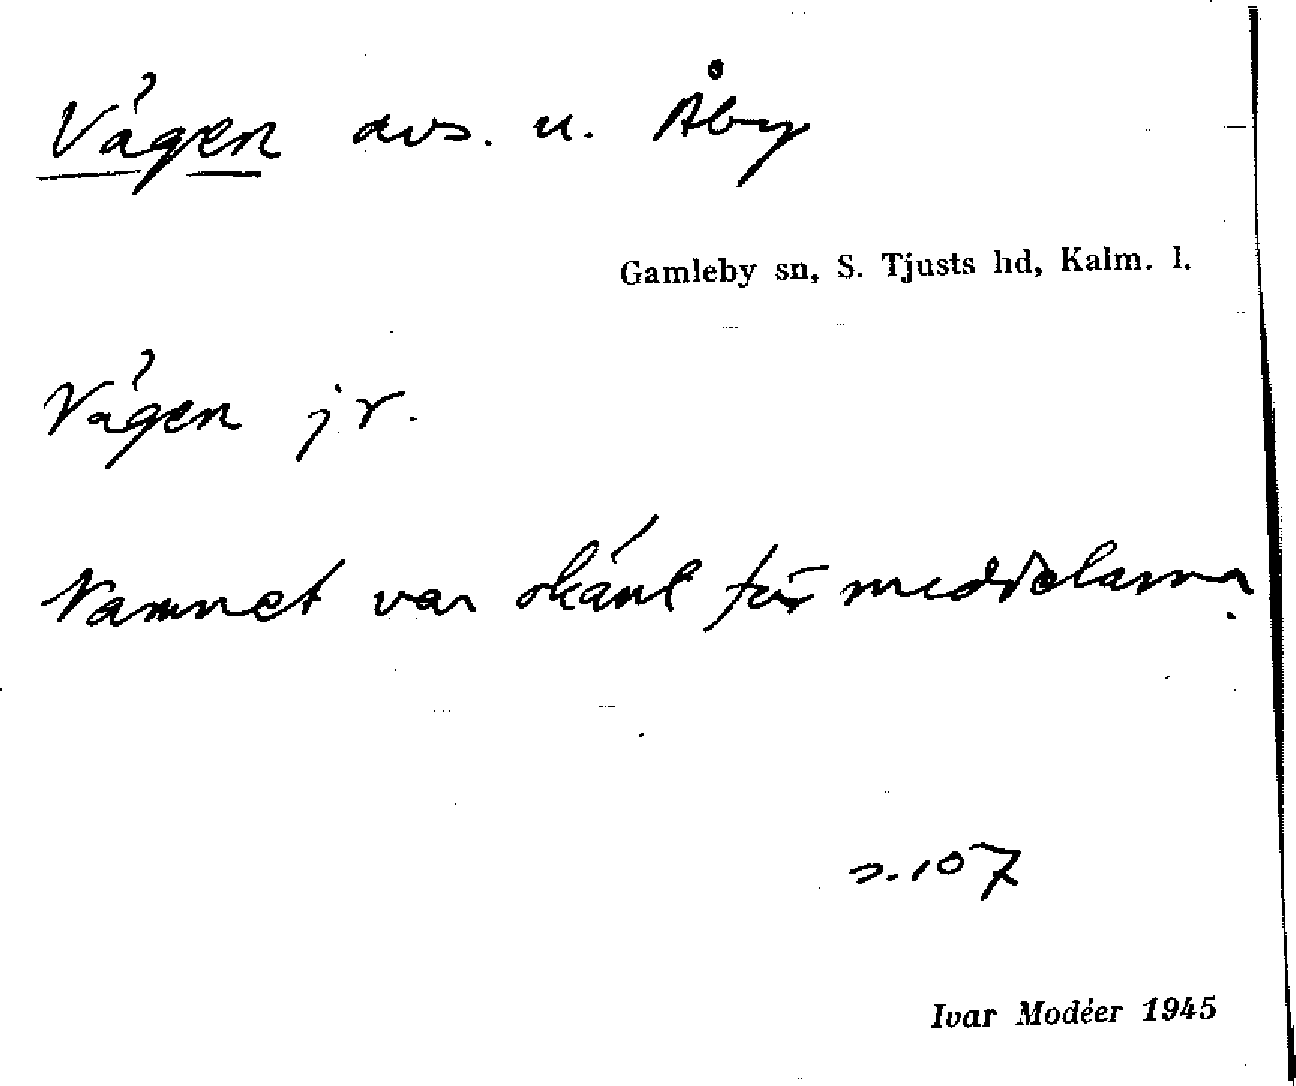 Vågen avs. u. Åby
Gamleby sn, S. Tjusts hd, Kalm. l.
Vågen jr.
Namnet var okänt för meddelarna.
s. 107
Ivar Modéer 1945